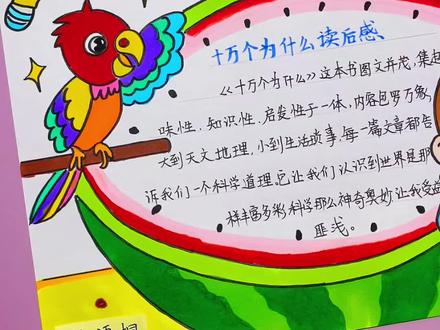 十万个为什么读后感
《十万个为什么》这本书图文并茂,集趣
味性、知识性、启发性于一体,内容包罗万象,
大到天文地理,小到生活琐事,每一篇文章都告
诉我们一个科学道理。它让我们认识到世界是那
样丰富多彩,科学那么神奇奥妙,让我受益
匪浅。